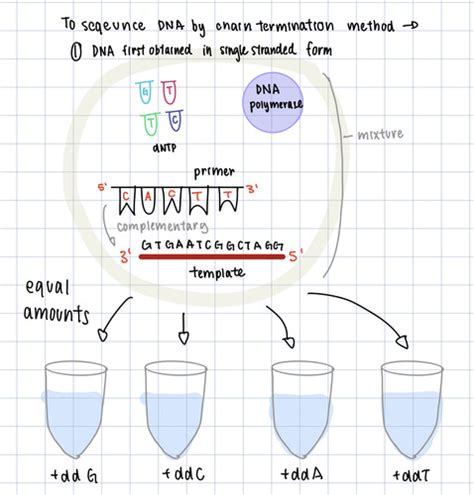 To sequence DNA by chain termination method →
① DNA first obtained in single stranded form
G T
T C
dNTP
DNA
polymerase
mixture
primer
5' C A C T T 3'
complementary
GTGAATCGGCTAGG
3' 5'
template
equal
amounts
+ddG +ddC +ddA +ddT